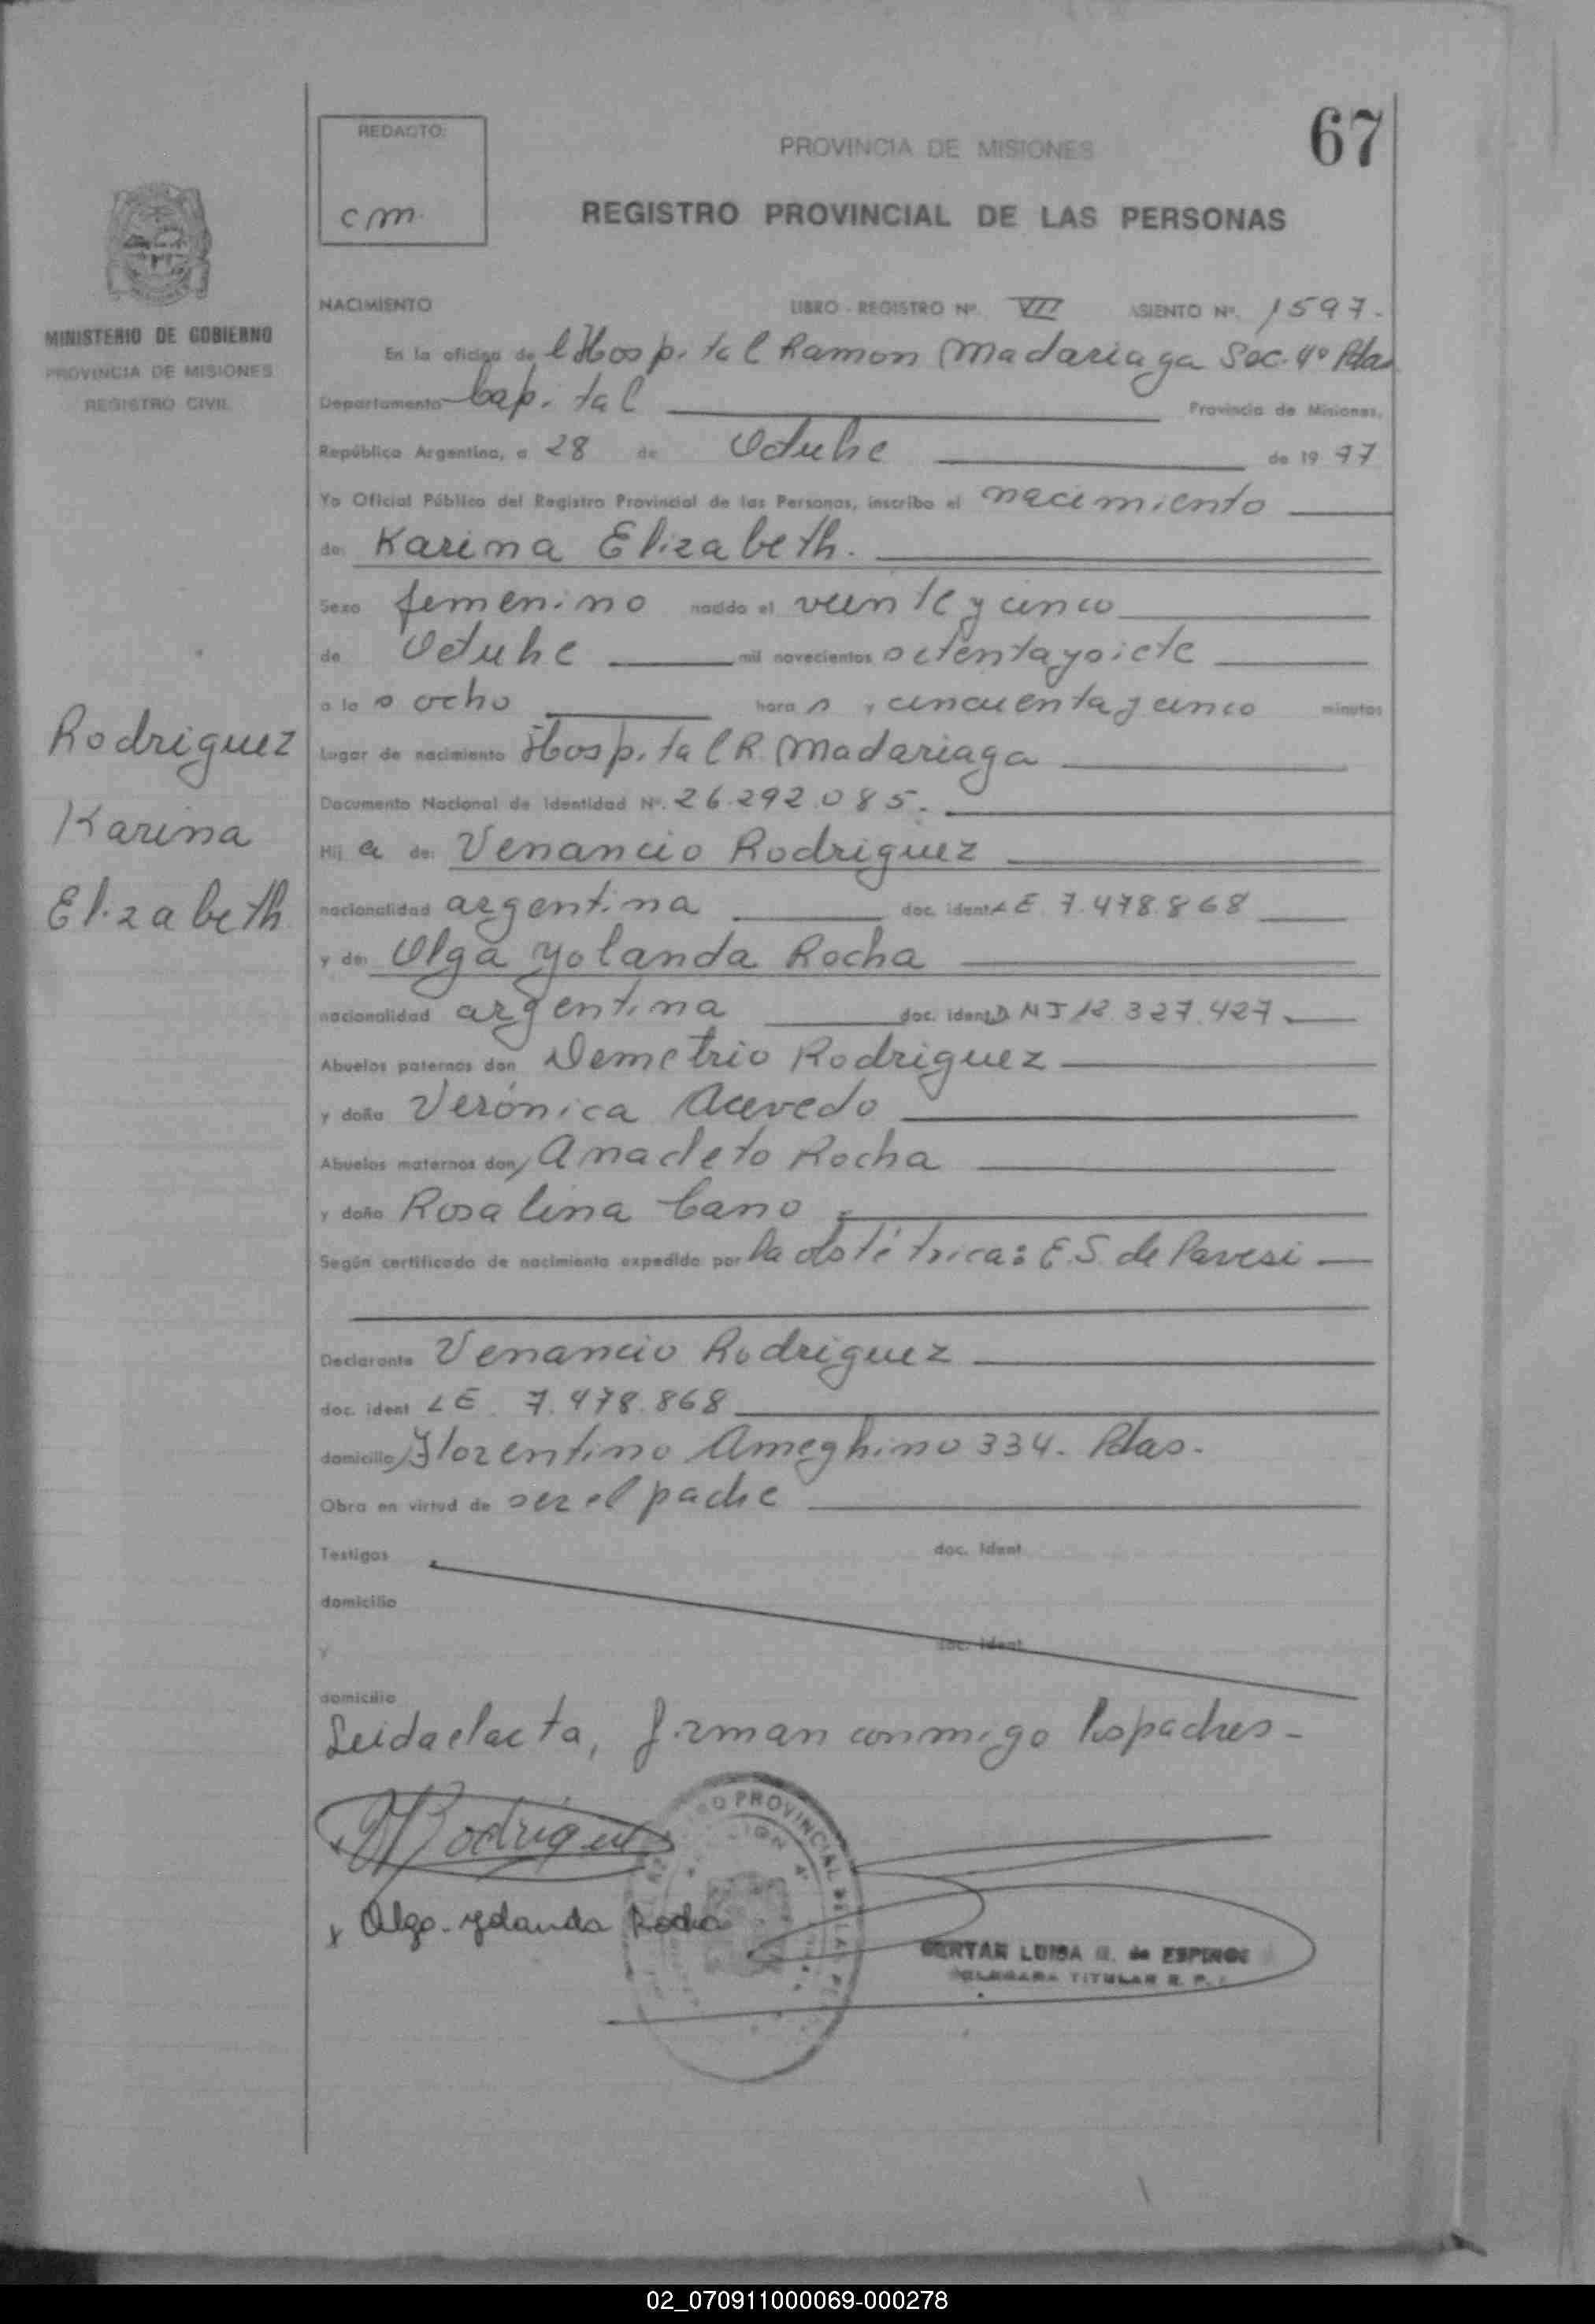 67
REDACTO:
cm.
PROVINCIA DE MISIONES
REGISTRO PROVINCIAL DE LAS PERSONAS
MINISTERIO DE GOBIERNO
PROVINCIA DE MISIONES
REGISTRO CIVIL
NACIMIENTO LIBRO - REGISTRO Nº. VII ASIENTO Nº. 1597.-
En la oficina del Hospital Ramon Madariaga Sec. 4º Pdas
Departamento Capital Provincia de Misiones,
República Argentina, a 28 de Octubre de 1977
Yo Oficial Público del Registro Provincial de las Personas, inscribo el nacimiento
de: Karina Elizabeth.
Sexo femenino nacido el veinte y cinco
de Octubre mil novecientos setenta y siete
a las ocho horas y cincuenta y cinco minutos
Rodriguez
Karina
Elizabeth
Lugar de nacimiento Hospital R. Madariaga
Documento Nacional de Identidad Nº. 26.292.085.
Hija de: Venancio Rodriguez
nacionalidad argentina doc. ident LE 7.478.868
y de: Olga Yolanda Rocha
nacionalidad argentina doc. ident. DNI 12.327.427.
Abuelos paternos don Demetrio Rodriguez
y doña Verónica Acevedo
Abuelos maternos don, Anacleto Rocha
y doña Rosalina Cano
Según certificado de nacimiento expedido por la obstétrica: E.S. de Pavesi
Declarante Venancio Rodriguez
doc. ident LE. 7.478.868
domicilio Florentino Ameghino 334. Pdas.
Obra en virtud de ser el padre
Testigos doc. ident
domicilio
y doc. ident
domicilio
Leida el acta, firman conmigo los padres-
Rodriguez
x Olga Yolanda Rocha
PROVINCIAL DE LAS
LUISA de ESPINOS
TITULAR R. P.
02_070911000069-000278